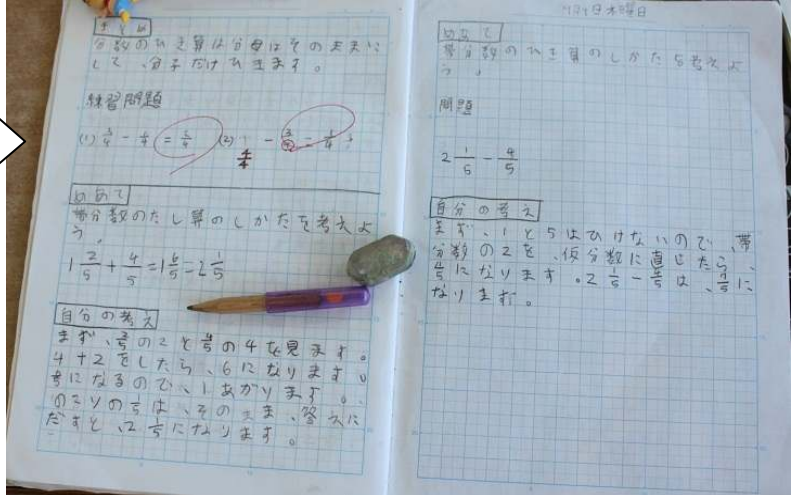 まとめ
分数のひき算は分母はそのままに
して、分子だけひきます。
練習問題
(1) 3/4 - 1/4 = 2/4 (2) 1 - 3/4 = 1/4
4/4
めあて
帯分数のたし算のしかたを考えよ
う。
1 2/5 + 4/5 = 1 6/5 = 2 1/5
自分の考え
まず、2/5の2と4/5の4を見ます。
4+2をしたら、6になります。
になるので、1あがります。
のこりの1/5は、そのまま、答えに
だすと、2 1/5になります。
木曜日
めあて
帯分数のひき算のしかたを考えよ
う。
問題
2 1/5 - 4/5
自分の考え
まず、1と5はひけないので、帯
分数の2を、仮分数に直したら、
になります。2 1/5 - 4/5は、に
なります。